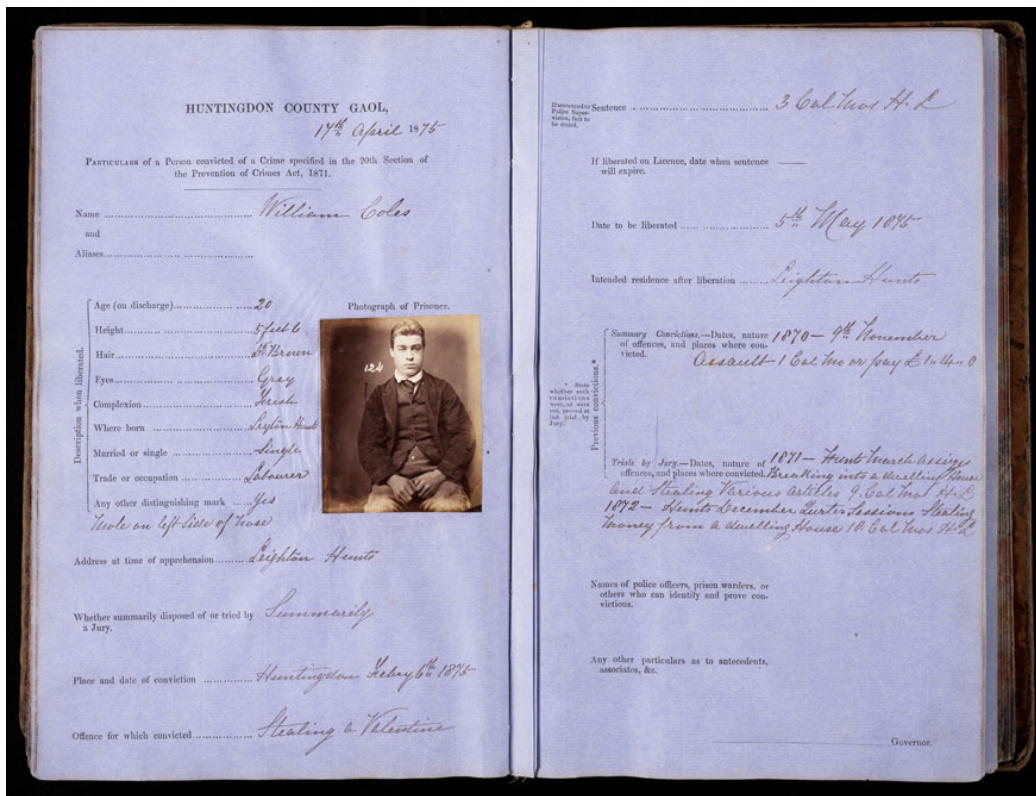 HUNTINGDON COUNTY GAOL,
17th April 1875
PARTICULARS of a Person convicted of a Crime specified in the 20th Section of
the Prevention of Crimes Act, 1871.
Name ........ William Coles
and
Aliases........
Description when liberated.
Age (on discharge)........ 20
Height........ 5 feet 6
Hair........ Lt. Brown
Eyes........ Gray
Complexion ........ Fresh
Where born ........ Leyton Hunts
Married or single ........ Single
Trade or occupation ........ Labourer
Any other distinguishing mark ........ Yes
Mole on left Side of Nose
Photograph of Prisoner.
124
Address at time of apprehension........ Leighton Hunts
Whether summarily disposed of or tried by Summarily
a Jury.
Place and date of conviction ........ Huntingdon Febry 6th 1875
Offence for which convicted........ Stealing a Valentine
If sentenced to
Police Super-
vision, fact to
be stated.
Sentence ........ 3 Cal Mos H. L
If liberated on Licence, date when sentence —
will expire.
Date to be liberated ........ 5th May 1875
Intended residence after liberation ........ Leighton Hunts
* State
whether such
convictions
were, or were
not, proved at
last trial by
Jury.
Previous convictions.*
Summary Convictions.—Dates, nature 1870 — 9th November
of offences, and places where con-
victed. Assault 1 Cal Mo or pay £ 1 " 4 " 0
Trials by Jury.—Dates, nature of 1871 — Hunts March Assizes
offences, and places where convicted. Breaking into a dwelling House
and Stealing Various articles 9. Cal Mos H. L
1872 — Hunts December Qurter Sessions Stealing
Money from a dwelling House 18 Cal Mos H. L
Names of police officers, prison warders, or
others who can identify and prove con-
victions.
Any other particulars as to antecedents,
associates, &c.
Governor.